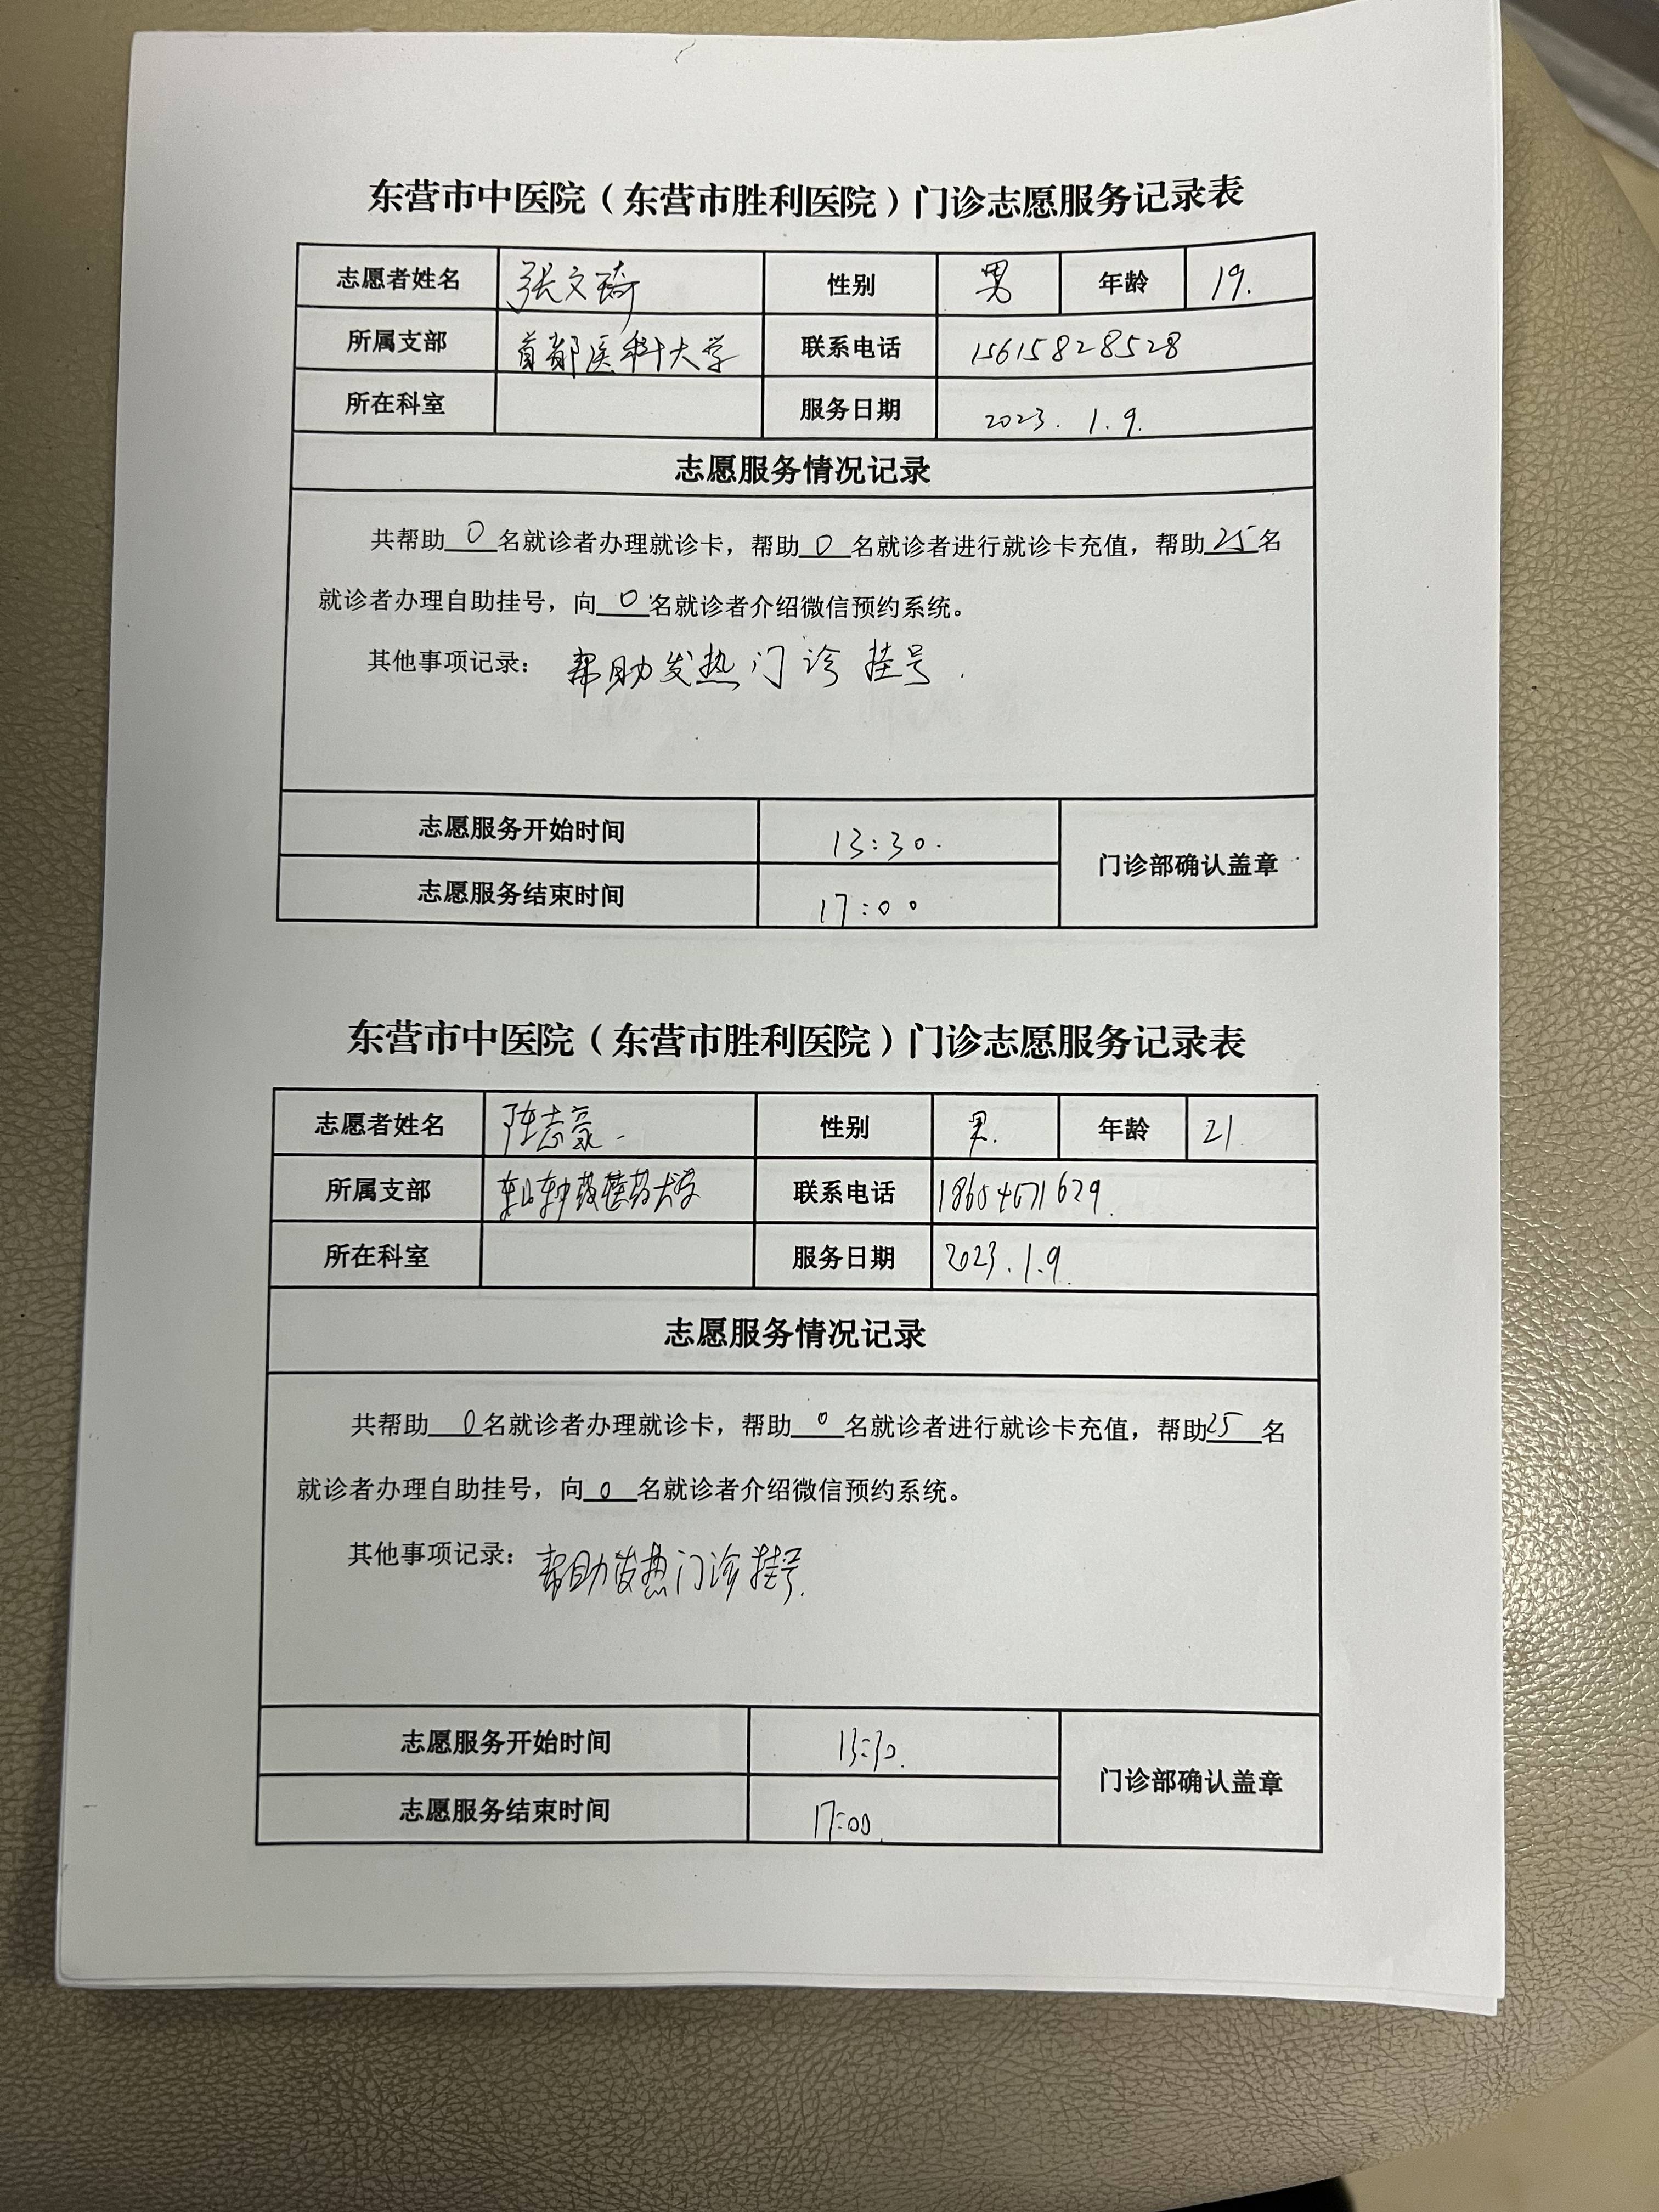 东营市中医院（东营市胜利医院）门诊志愿服务记录表
志愿者姓名 张文琦 性别 男 年龄 19.
所属支部 首都医科大学 联系电话 15615828528
所在科室 服务日期 2023. 1.9.
志愿服务情况记录
共帮助 0 名就诊者办理就诊卡，帮助 0 名就诊者进行就诊卡充值，帮助 25 名
就诊者办理自助挂号，向 0 名就诊者介绍微信预约系统。
其他事项记录： 帮助发热门诊挂号.
志愿服务开始时间 13:30.
门诊部确认盖章
志愿服务结束时间 17:00
东营市中医院（东营市胜利医院）门诊志愿服务记录表
志愿者姓名 志豪. 性别 男. 年龄 21.
所属支部 大学 联系电话
所在科室 服务日期 2023.1.9.
志愿服务情况记录
共帮助 0 名就诊者办理就诊卡，帮助 0 名就诊者进行就诊卡充值，帮助 25 名
就诊者办理自助挂号，向 0 名就诊者介绍微信预约系统。
其他事项记录： 帮助发热门诊挂号.
志愿服务开始时间 13:30.
门诊部确认盖章
志愿服务结束时间 17:00.